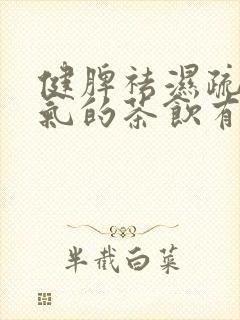 健脾祛濕疏
氣的茶飲有
半截白菜